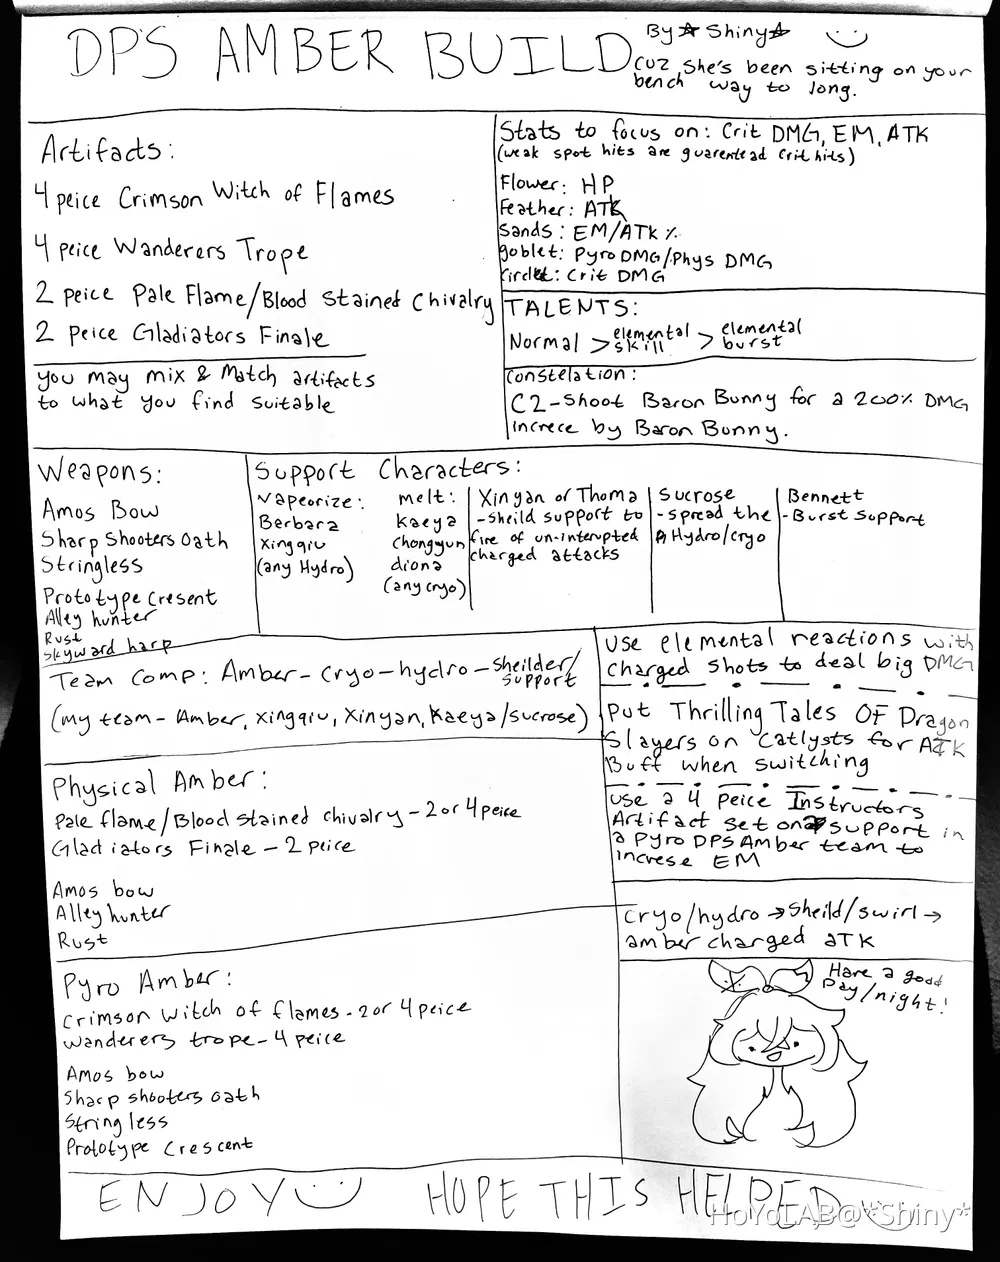 DPS AMBER BUILD
By ☆ Shiny☆
cuz she's been sitting on your
bench way to long.
Artifacts:
4 peice Crimson Witch of Flames
4 peice Wanderers Trope
2 peice Pale Flame/Blood Stained Chivalry
2 Peice Gladiators Finale
you may mix & Match artifacts
to what you find suitable
Stats to focus on: Crit DMG, EM, ATK
(weak spot hits are guarentead crit hits)
Flower: HP
Feather: ATK
Sands: EM/ATK %
goblet: Pyro DMG/Phys DMG
Circlet: Crit DMG
TALENTS:
Normal > elemental skill > elemental burst
Constelation:
C2-Shoot Baron Bunny for a 200% DMG
increce by Baron Bunny.
Weapons:
Amos Bow
Sharp Shooters Oath
Stringless
Prototype Cresent
Alley hunter
Rust
Skyward harp
Support Characters:
Vapeorize:
Berbara
Xingqiu
(any Hydro)
melt:
Kaeya
Chongyun
diona
(any cryo)
Xinyan or Thoma
-Sheild support to
fire of un-interupted
charged attacks
Sucrose
-spread the
Hydro/cryo
Bennett
-Burst Support
Team Comp: Amber-Cryo-hydro-Sheilder/
support
(my team- Amber, Xingqiu, Xinyan, Kaeya/sucrose)
Use elemental reactions with
charged shots to deal big DMG
Put Thrilling Tales OF Dragon
Slayers on Catlysts for ATK
Buff when switching
Use a 4 peice Instructors
Artifact set on a support in
a Pyro DPS Amber team to
increse EM
Physical Amber:
Pale flame/Blood stained chivalry-2 or 4 peice
Gladiators Finale - 2 peice
Amos bow
Alley hunter
Rust
Cryo/hydro → Sheild/swirl →
amber charged ATK
Pyro Amber:
Crimson witch of flames-2 or 4 peice
Wanderers trope-4 peice
Amos bow
Sharp shooters oath
Stringless
Prototype Crescent
Have a good
Day/night!
ENJOY
HOPE THIS HELPED
HoYoLAB@*Shiny*